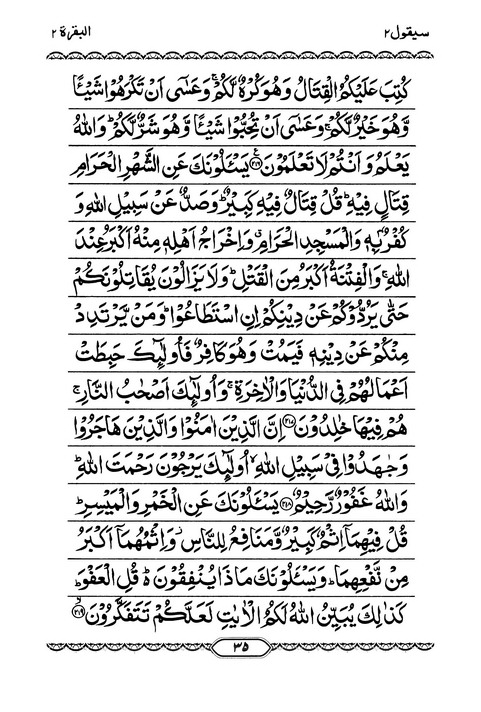 سیقول ۲ البقرة ۲
كُتِبَ عَلَيْكُمُ الْقِتَالُ وَهُوَ كُرْهٌ لَّكُمْ ۚ وَعَسٰٓى اَنْ تَكْرَهُوْا شَيْـًٔا
وَّهُوَ خَيْرٌ لَّكُمْ ۚ وَعَسٰٓى اَنْ تُحِبُّوْا شَيْـًٔا وَّهُوَ شَرٌّ لَّكُمْ ؕ وَاللّٰهُ
يَعْلَمُ وَاَنْتُمْ لَا تَعْلَمُوْنَ ﴿۲۱۶﴾ يَسْـَٔلُوْنَكَ عَنِ الشَّهْرِ الْحَرَامِ
قِتَالٍ فِيْهِ ؕ قُلْ قِتَالٌ فِيْهِ كَبِيْرٌ ؕ وَصَدٌّ عَنْ سَبِيْلِ اللّٰهِ وَ
كُفْرٌۢ بِهٖ وَالْمَسْجِدِ الْحَرَامِ ۗ وَاِخْرَاجُ اَهْلِهٖ مِنْهُ اَكْبَرُ عِنْدَ
اللّٰهِ ۚ وَالْفِتْنَةُ اَكْبَرُ مِنَ الْقَتْلِ ؕ وَلَا يَزَالُوْنَ يُقَاتِلُوْنَكُمْ
حَتّٰى يَرُدُّوْكُمْ عَنْ دِيْنِكُمْ اِنِ اسْتَطَاعُوْا ؕ وَمَنْ يَّرْتَدِدْ
مِنْكُمْ عَنْ دِيْنِهٖ فَيَمُتْ وَهُوَ كَافِرٌ فَاُولٰٓئِكَ حَبِطَتْ
اَعْمَالُهُمْ فِى الدُّنْيَا وَالْاٰخِرَةِ ۚ وَاُولٰٓئِكَ اَصْحٰبُ النَّارِ ۚ
هُمْ فِيْهَا خٰلِدُوْنَ ﴿۲۱۷﴾ اِنَّ الَّذِيْنَ اٰمَنُوْا وَالَّذِيْنَ هَاجَرُوْا
وَجٰهَدُوْا فِىْ سَبِيْلِ اللّٰهِ ۙ اُولٰٓئِكَ يَرْجُوْنَ رَحْمَتَ اللّٰهِ ؕ
وَاللّٰهُ غَفُوْرٌ رَّحِيْمٌ ﴿۲۱۸﴾ يَسْـَٔلُوْنَكَ عَنِ الْخَمْرِ وَالْمَيْسِرِ ؕ
قُلْ فِيْهِمَآ اِثْمٌ كَبِيْرٌ وَّمَنَافِعُ لِلنَّاسِ ۫ وَاِثْمُهُمَآ اَكْبَرُ
مِنْ نَّفْعِهِمَا ؕ وَيَسْـَٔلُوْنَكَ مَاذَا يُنْفِقُوْنَ ۬ؕ قُلِ الْعَفْوَ ؕ
كَذٰلِكَ يُبَيِّنُ اللّٰهُ لَكُمُ الْاٰيٰتِ لَعَلَّكُمْ تَتَفَكَّرُوْنَ ﴿۲۱۹﴾
۳۵